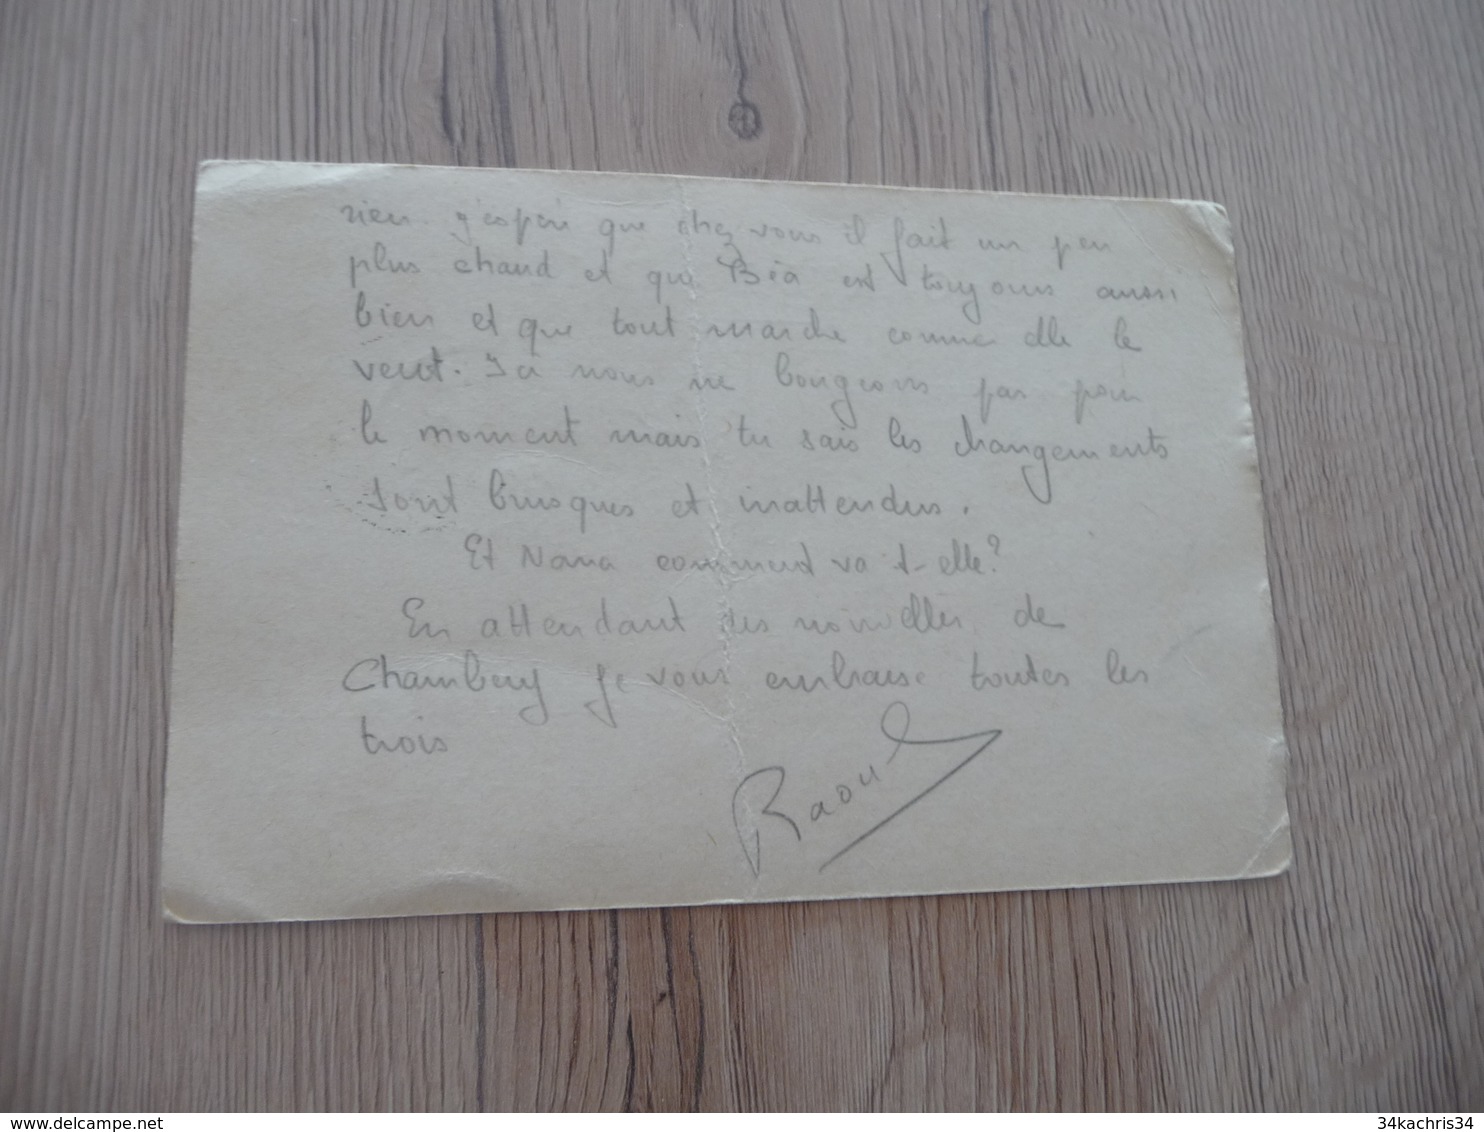 rien. j'espère que chez vous il fait un peu
plus chaud et que Béa est toujours aussi
bien et que tout marche comme elle le
veut. Ici nous ne bougeons pas pour
le moment mais tu sais les changements
sont brusques et inattendus.
Et Nana comment va-t-elle?
En attendant des nouvelles de
Chambery je vous embrasse toutes les
trois
Raoul
delcampe.net
34kachris34